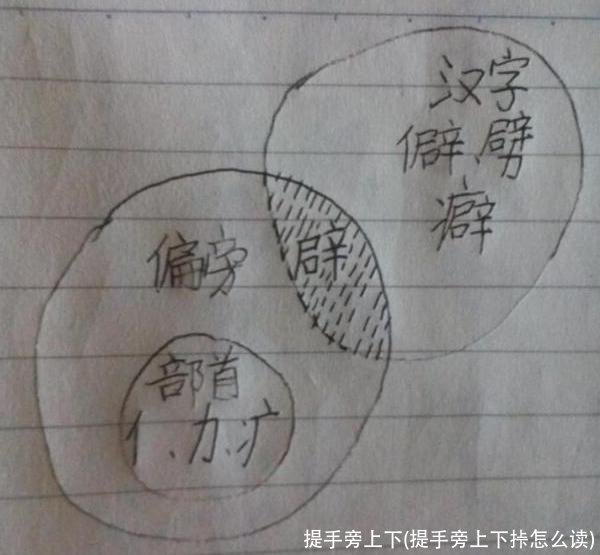 汉字
僻、劈、
癖
偏旁
辟
部首
亻、力、疒
提手旁上下(提手旁上下挊怎么读)